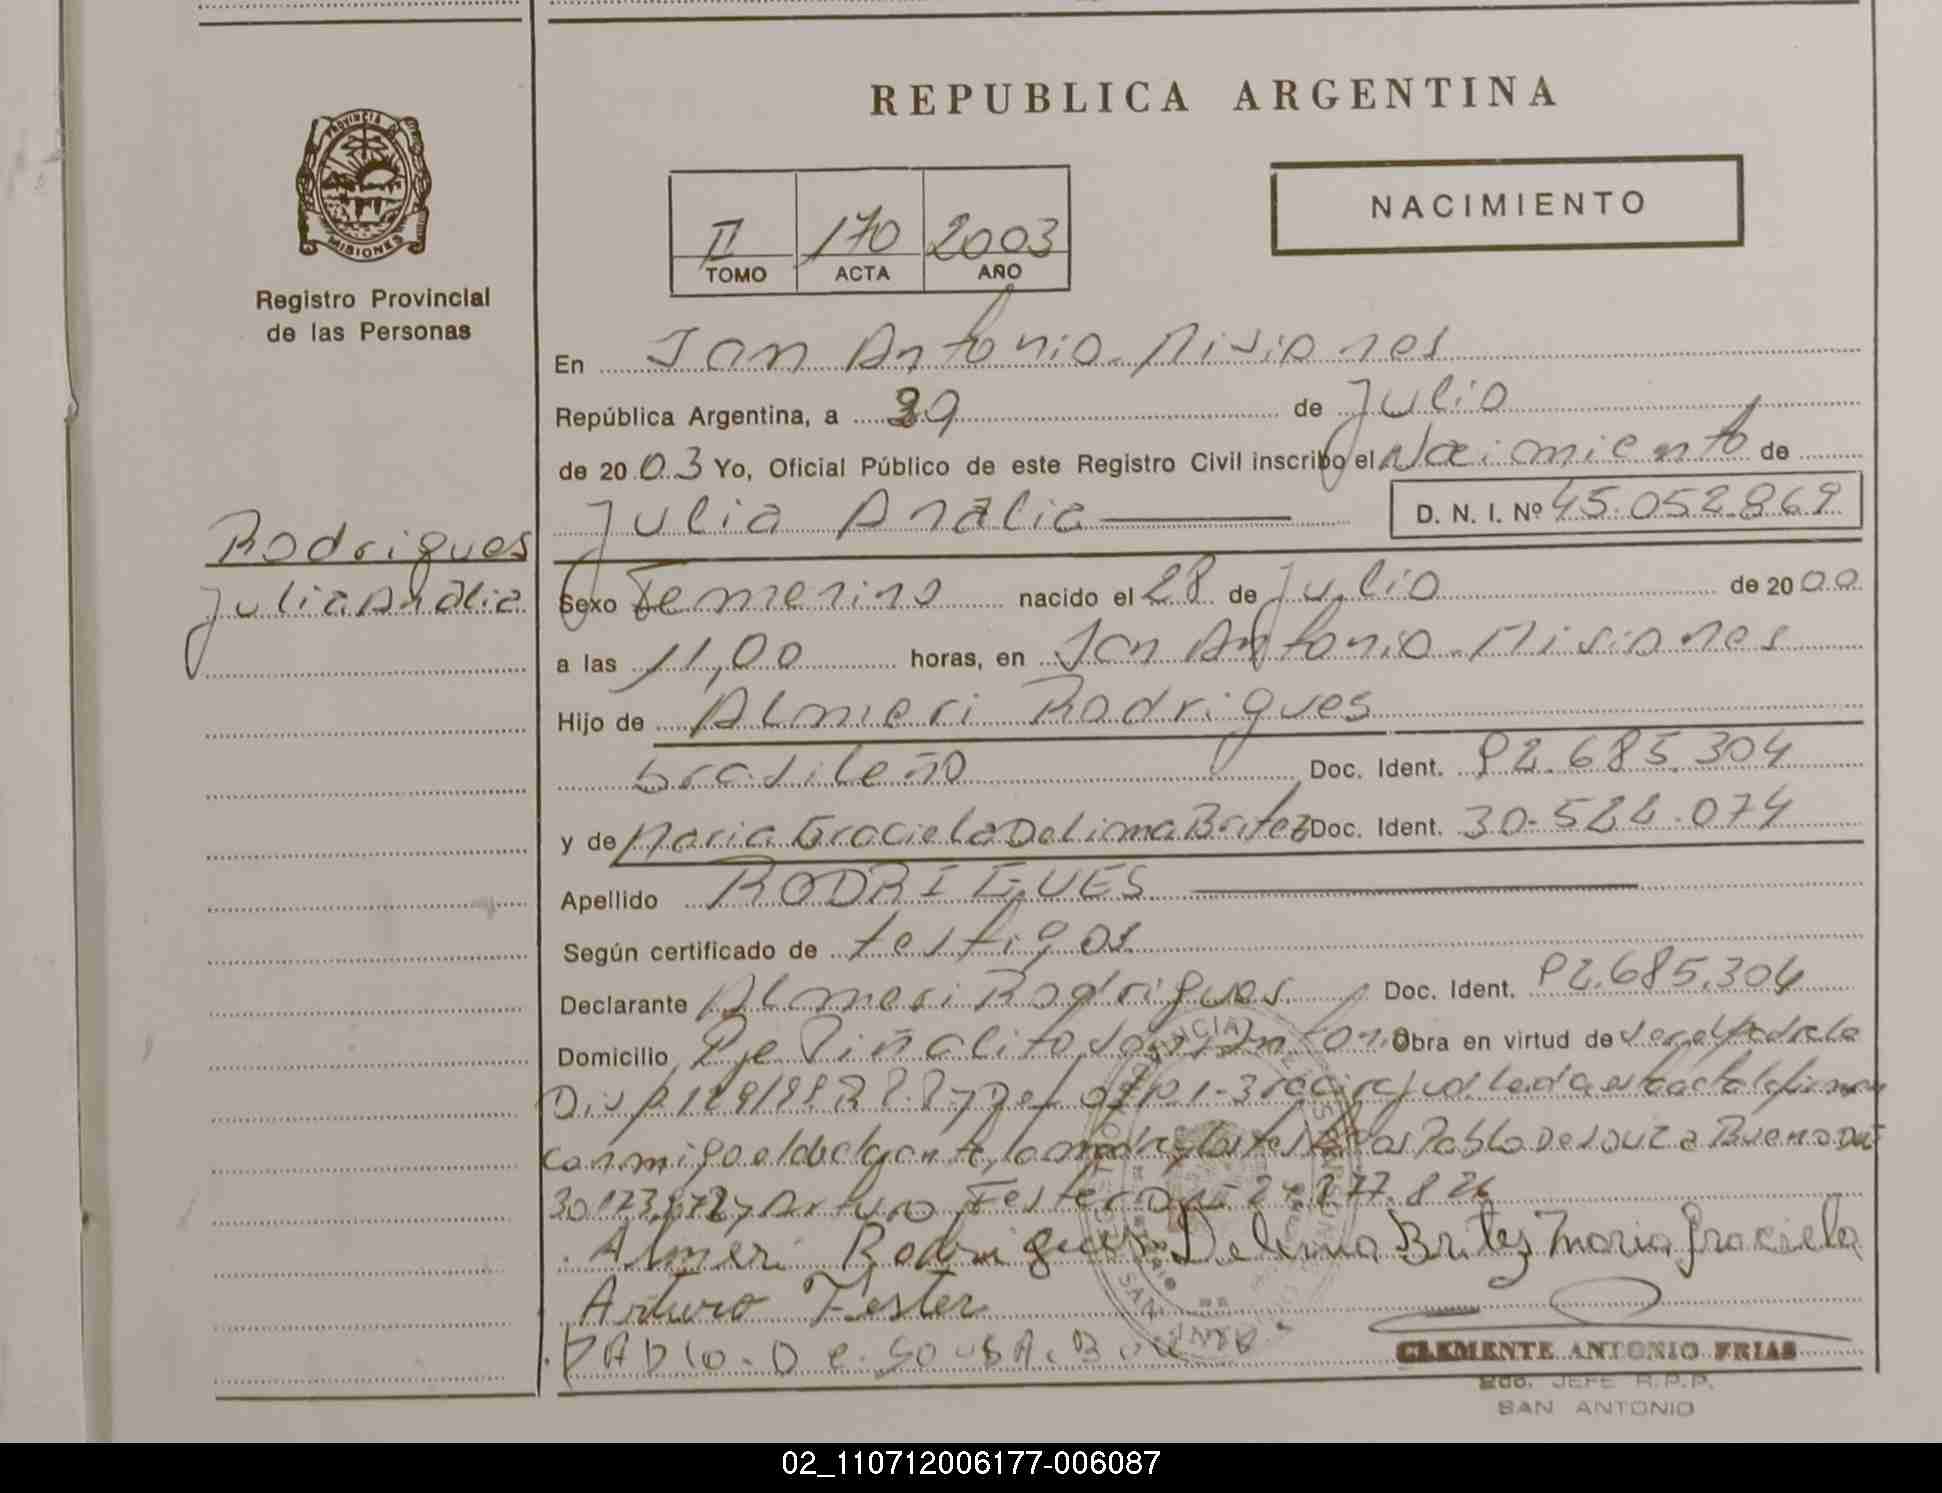 PROVINCIA DE
MISIONES
Registro Provincial
de las Personas
Rodrigues
Julia Analia
REPUBLICA ARGENTINA
NACIMIENTO
II 170 2003
TOMO ACTA AÑO
En San Antonio Misiones
República Argentina, a 29 de Julio
de 2003 Yo, Oficial Público de este Registro Civil inscribo el Nacimiento de
Julia Analia D. N. I. Nº 45.052.869
Sexo Femenino nacido el 28 de Julio de 2000
a las 11,00 horas, en San Antonio Misiones
Hijo de Almeri Rodrigues
brasileño Doc. Ident. P2.685.304
y de Maria Graciela De Lima Britez Doc. Ident. 30.522.074
Apellido RODRIGUES
Según certificado de testigos
Declarante Almeri Rodrigues Doc. Ident. P2.685.304
Domicilio Pje Piñalito San Antonio Obra en virtud de ser el padre la
Disp 129/99 R.P.P y
conmigo el declarante, la madre y los testigos Pablo De Souza Bueno DNI
y Arturo Fester DNI
Almeri Rodrigues Delima Britez Maria Graciela
Arturo Fester
PABLO De SOUSA
CLEMENTE ANTONIO FRIAS
JEFE R.P.P.
SAN ANTONIO
02_110712006177-006087